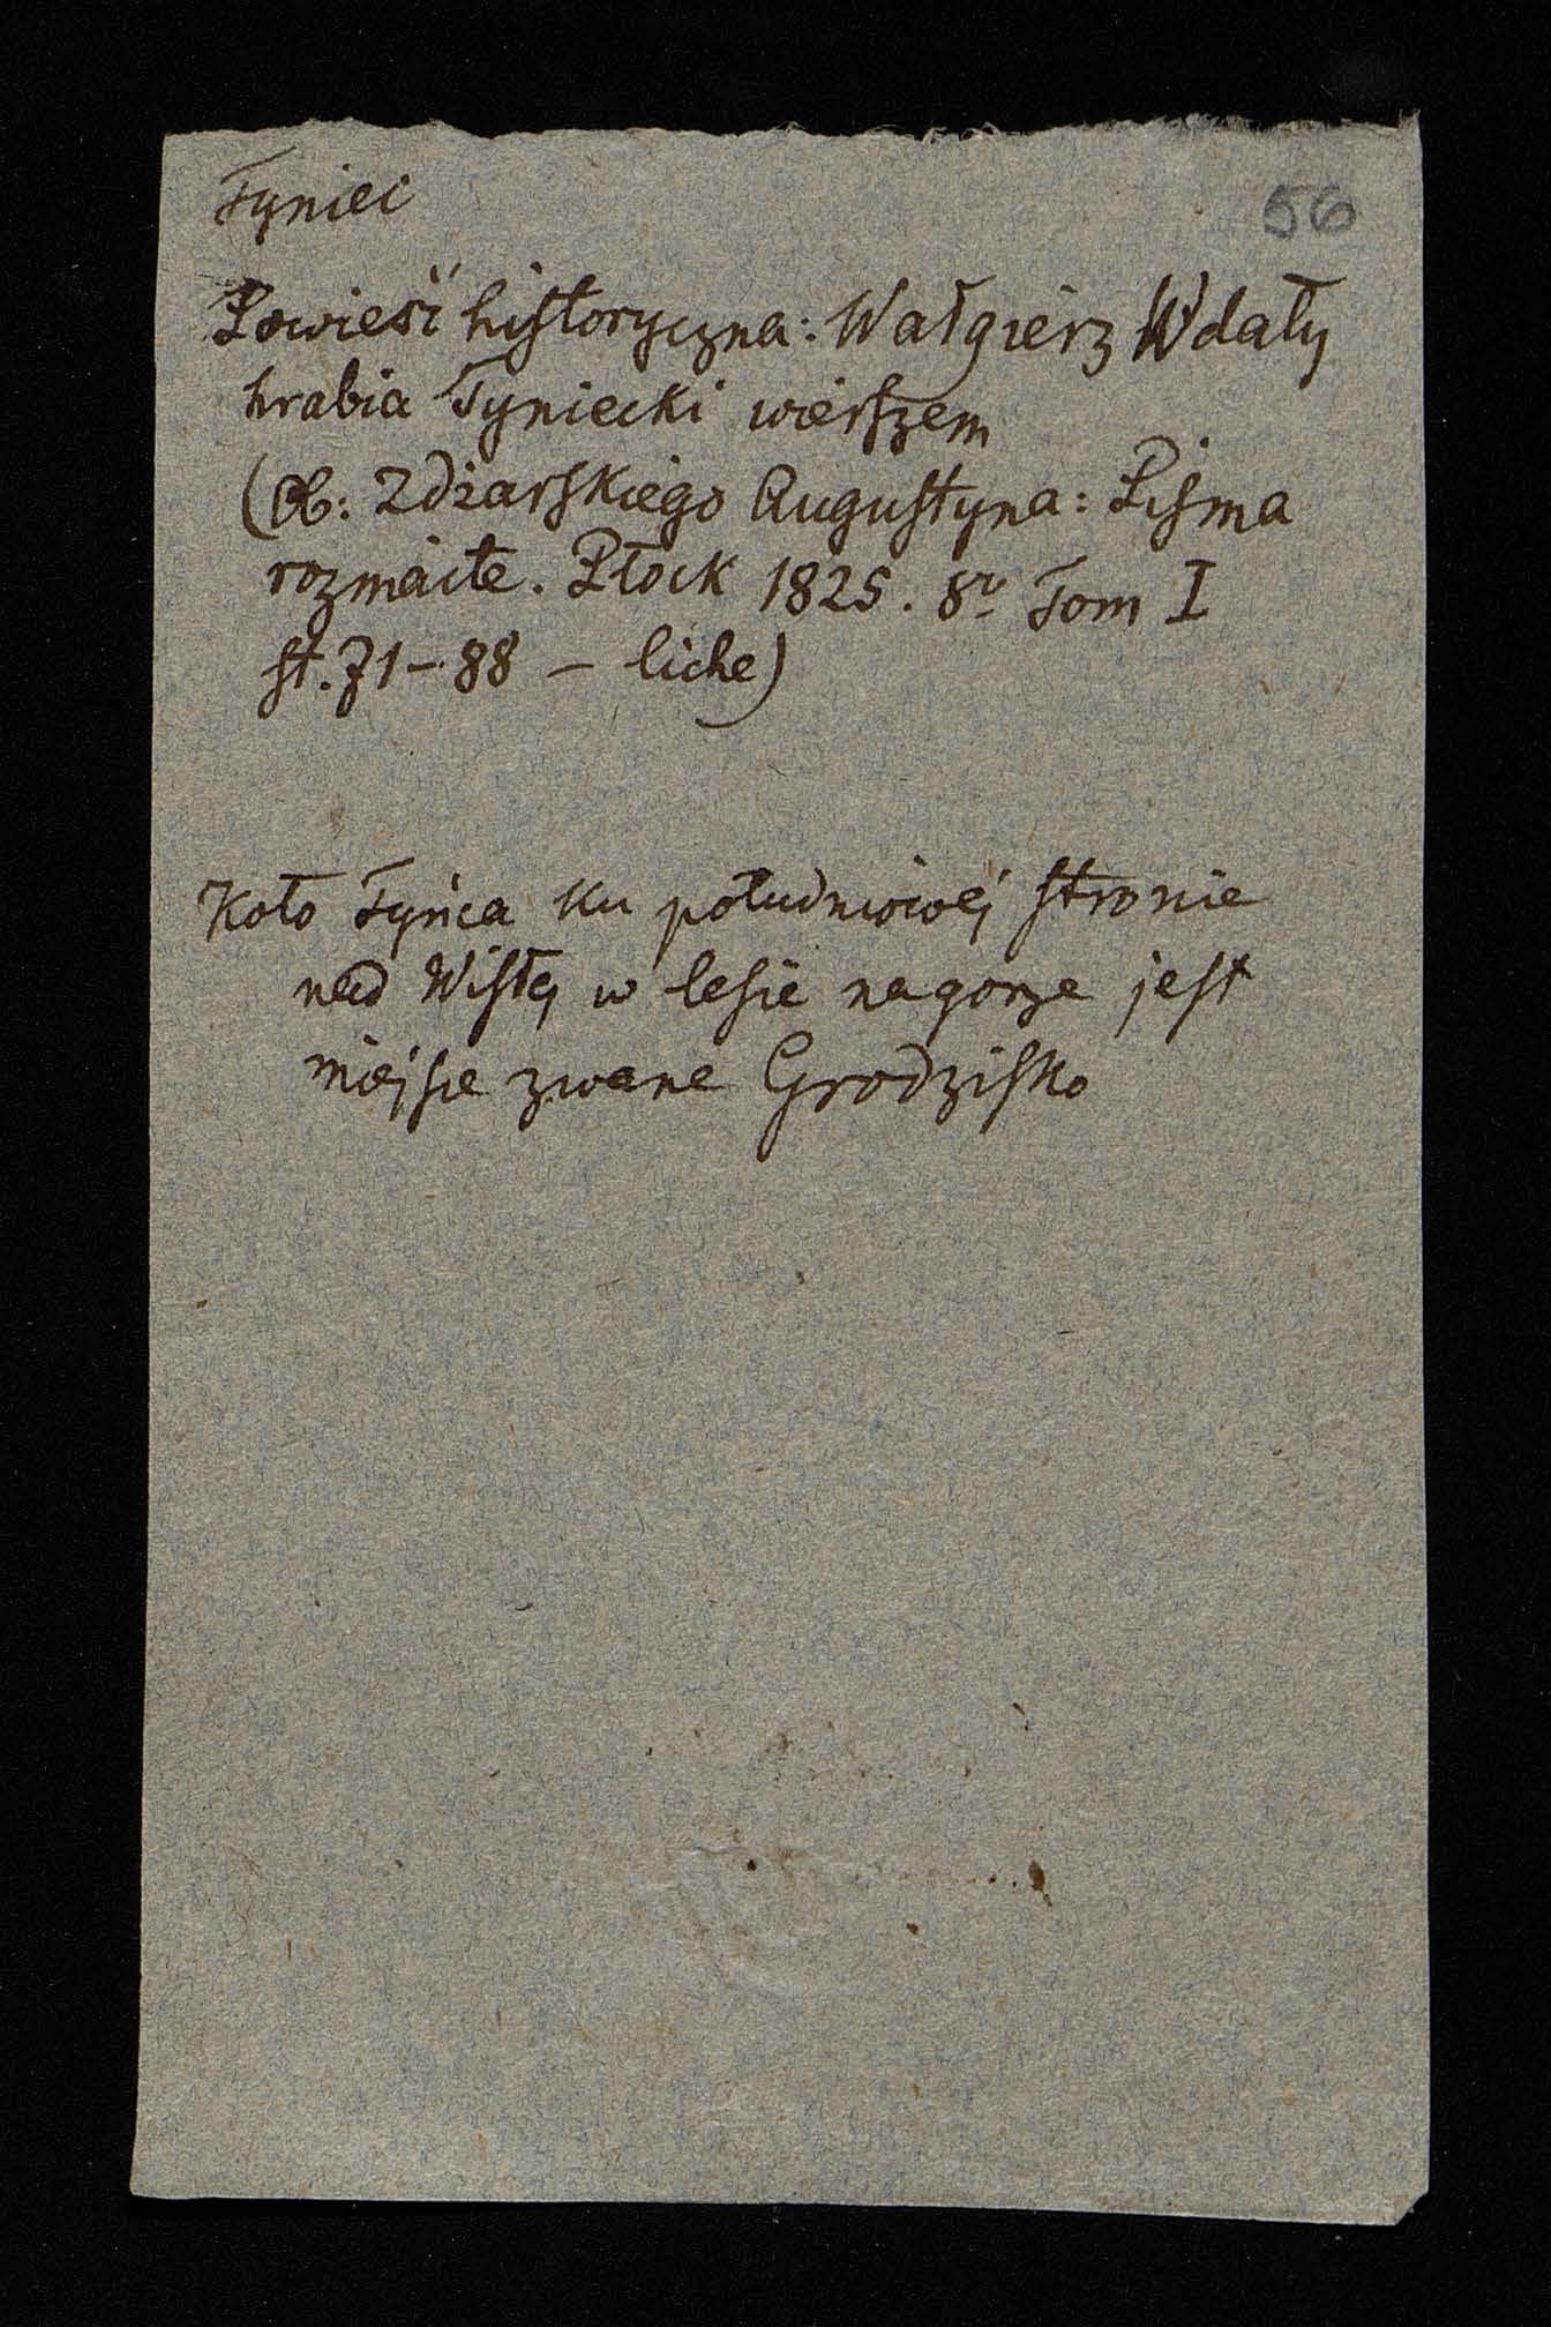 Tyniec
56
Powieść historyczna: Wałgierz Wdały
hrabia Tyniecki wierszem
(Ob: Zdżarskiego Augustyna: Pisma
rozmaite. Płock 1825. 8º Tom I
st. 71 – 88 – liche)
Koło Tyńca ku południowéj stronie
nad Wisłą w lesie na gorze jest
miejsce zwane Grodzisko